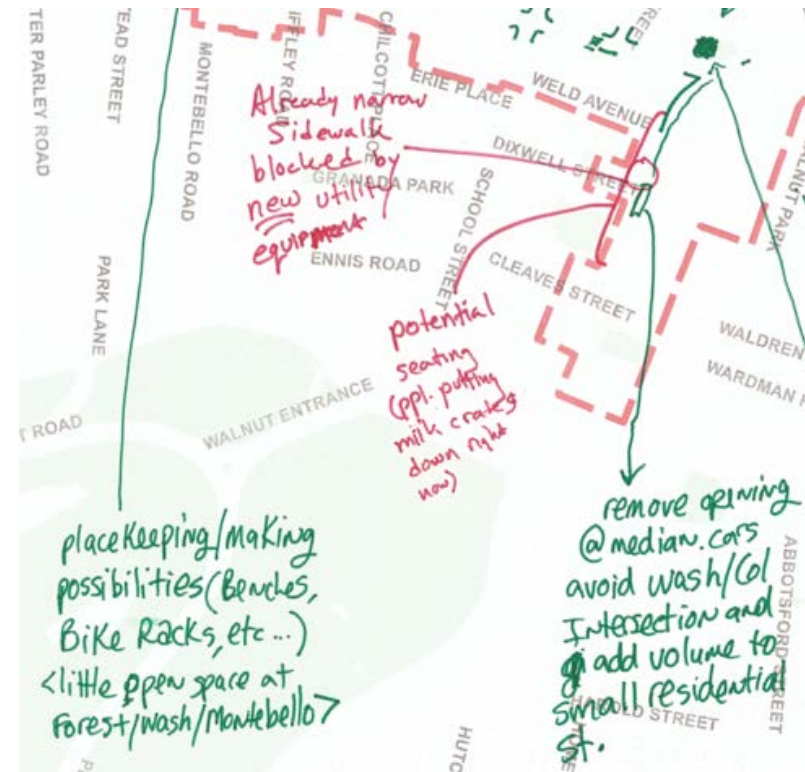 TER PARLEY ROAD
EAD STREET
MONTEBELLO ROAD
IFFLEY ROAD
CHILCOTT PLACE
ERIE PLACE
WELD AVENUE
STREET
DIXWELL STREET
GRANADA PARK
SCHOOL STREET
ENNIS ROAD
CLEAVES STREET
ALNUT PARK
PARK LANE
WALDREN
WARDMAN R
T ROAD
WALNUT ENTRANCE
ABBOTSFORD STREET
HAROLD STREET
HUTC
Already narrow
Sidewalk
blocked by
new utility
equipment
potential
seating
(ppl. putting
milk crates
down right
now)
placekeeping/making
possibilities (Benches,
Bike Racks, etc...)
<little open space at
Forest/Wash/Montebello>
remove opening
@ median. cars
avoid wash/Col
Intersection and
add volume to
small residential
st.